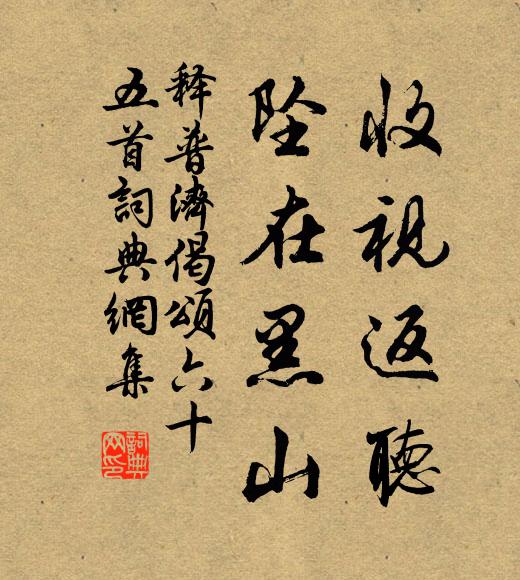 收視返聽
坠在黑山
释普濟偈頌六十
五首詞典網集
詞典网印